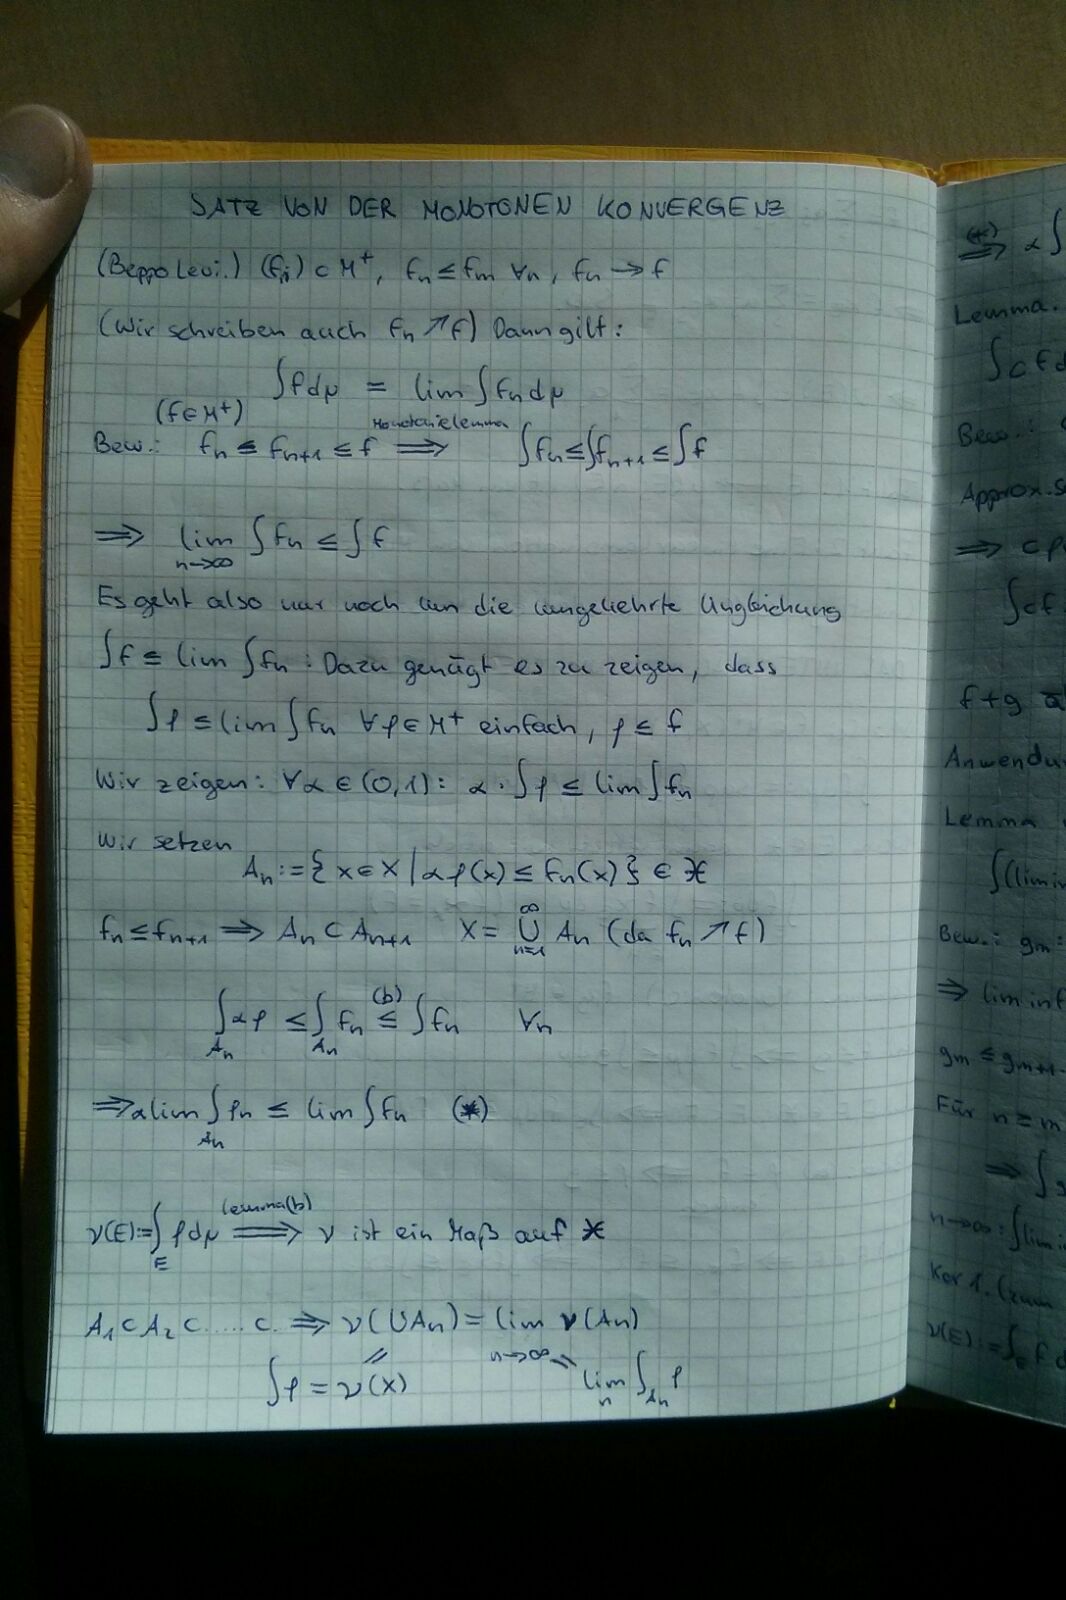 SATZ VON DER MONOTONEN KONVERGENZ
(Beppo Levi.) (fn) ⊂ M⁺, fn ≤ fm ∀n, fn → f
(Wir schreiben auch fn ↗ f) Dann gilt:
∫fdμ = lim ∫fn dμ
(f∈M⁺)
Bew.: fn ≤ fn+1 ≤ f ⟹ (Monotonielemma) ∫fn ≤ ∫fn+1 ≤ ∫f
⟹ lim n→∞ ∫fn ≤ ∫f
Es geht also nur noch um die umgekehrte Ungleichung
∫f ≤ lim ∫fn : Dazu genügt es zu zeigen, dass
∫φ ≤ lim ∫fn ∀φ∈M⁺ einfach, φ ≤ f
Wir zeigen: ∀α∈(0,1): α·∫φ ≤ lim ∫fn
Wir setzen
An := {x∈X | αφ(x) ≤ fn(x)} ∈ 𝔛
fn ≤ fn+1 ⟹ An ⊂ An+1 X = ⋃ n=1 ∞ An (da fn ↗ f)
∫An αφ ≤ ∫An fn ≤ (b) ∫fn ∀n
⟹ α lim ∫An φn ≤ lim ∫fn (*)
ν(E) := ∫E φdμ ⟹ Lemma(b) ν ist ein Maß auf 𝔛
A1 ⊂ A2 ⊂ ..... ⊂. ⟹ ν(∪An) = lim n→∞ ν(An)
∫φ = ν(X) = lim n ∫An φ
(*)
⟹ α∫
Lemma.
∫cf
Bew.:
⟹ cφ
∫cf
f+g
Lemma
Bew.: gm
⟹ lim inf
gm ≤ gm+1
Für n ≥ m
⟹ ∫g
n→∞:
Kor 1. (zum
ν(E) := ∫E f